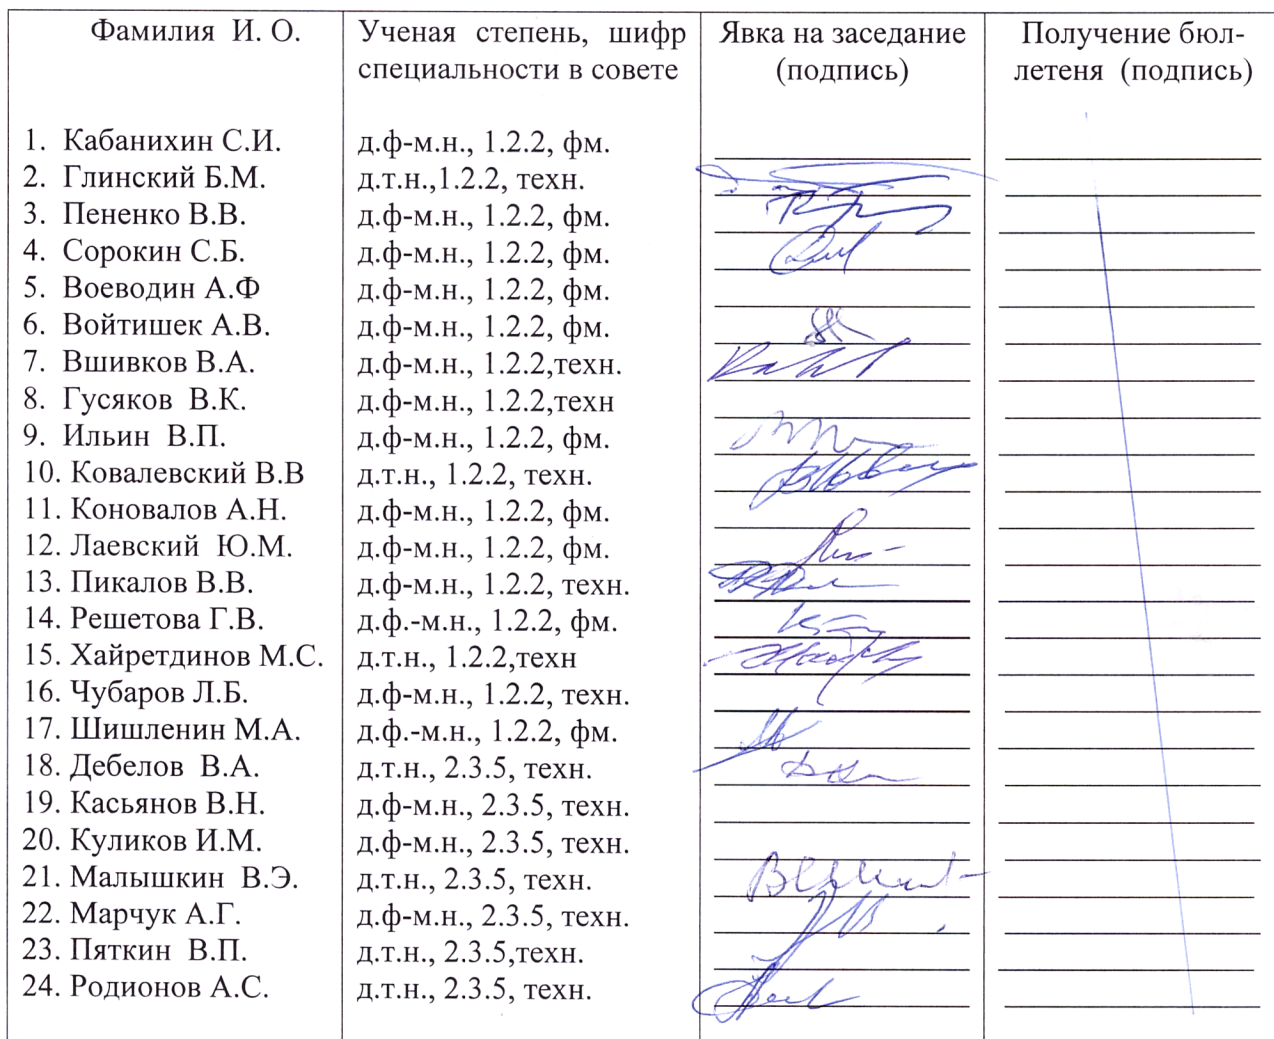 Фамилия И. О. Ученая степень, шифр Явка на заседание Получение бюл-
специальности в совете (подпись) летеня (подпись)
1. Кабанихин С.И. д.ф-м.н., 1.2.2, фм.
2. Глинский Б.М. д.т.н.,1.2.2, техн.
3. Пененко В.В. д.ф-м.н., 1.2.2, фм.
4. Сорокин С.Б. д.ф-м.н., 1.2.2, фм.
5. Воеводин А.Ф д.ф-м.н., 1.2.2, фм.
6. Войтишек А.В. д.ф-м.н., 1.2.2, фм.
7. Вшивков В.А. д.ф-м.н., 1.2.2,техн.
8. Гусяков В.К. д.ф-м.н., 1.2.2,техн
9. Ильин В.П. д.ф-м.н., 1.2.2, фм.
10. Ковалевский В.В д.т.н., 1.2.2, техн.
11. Коновалов А.Н. д.ф-м.н., 1.2.2, фм.
12. Лаевский Ю.М. д.ф-м.н., 1.2.2, фм.
13. Пикалов В.В. д.ф-м.н., 1.2.2, техн.
14. Решетова Г.В. д.ф.-м.н., 1.2.2, фм.
15. Хайретдинов М.С. д.т.н., 1.2.2,техн
16. Чубаров Л.Б. д.ф-м.н., 1.2.2, техн.
17. Шишленин М.А. д.ф.-м.н., 1.2.2, фм.
18. Дебелов В.А. д.т.н., 2.3.5, техн.
19. Касьянов В.Н. д.ф-м.н., 2.3.5, техн.
20. Куликов И.М. д.ф-м.н., 2.3.5, техн.
21. Малышкин В.Э. д.т.н., 2.3.5, техн.
22. Марчук А.Г. д.ф-м.н., 2.3.5, техн.
23. Пяткин В.П. д.т.н., 2.3.5,техн.
24. Родионов А.С. д.т.н., 2.3.5, техн.